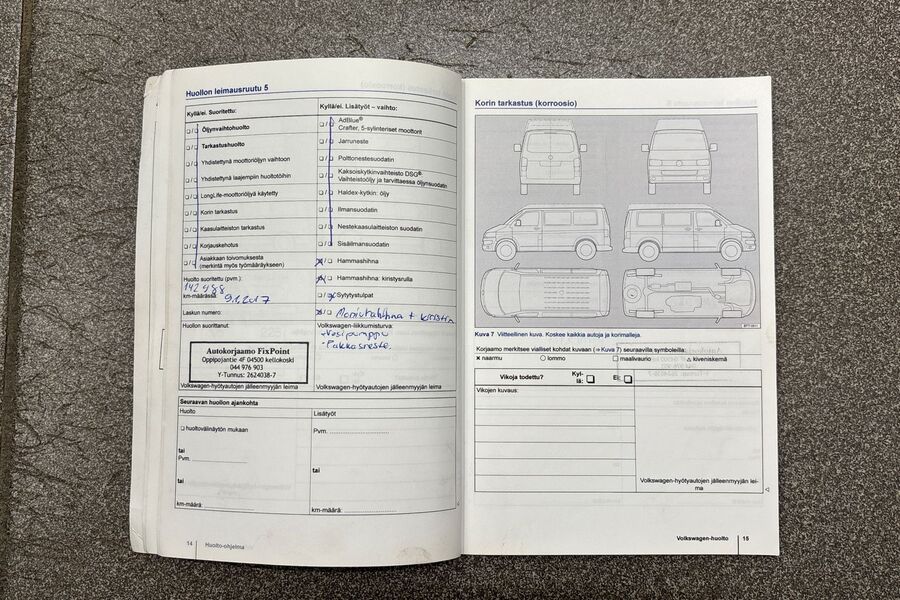 Huollon leimausruutu 5
Kyllä/ei. Suoritettu:
Öljynvaihtohuolto
Tarkastushuolto
Yhdistettynä moottoriöljyn vaihtoon
Yhdistettynä laajempiin huoltotöihin
LongLife-moottoriöljyä käytetty
Korin tarkastus
Kaasulaitteiston tarkastus
Korjauskehotus
Asiakkaan toivomuksesta
(merkintä myös työmääräykseen)
Huolto suoritettu (pvm.):
142988
km-määrässä: 9.1.2017
Laskun numero:
Huollon suorittanut:
Autokorjaamo FixPoint
Oppipojantie 4F 04500 kellokoski
044 976 903
Y-Tunnus: 2624038-7
Volkswagen-hyötyautojen jälleenmyyjän leima
Kyllä/ei. Lisätyöt – vaihto:
AdBlue®
Crafter, 5-sylinteriset moottorit
Jarruneste
Polttonestesuodatin
Kaksoiskytkinvaihteisto DSG®:
Vaihteistoöljy ja tarvittaessa öljynsuodatin
Haldex-kytkin: öljy
Ilmansuodatin
Nestekaasulaitteiston suodatin
Sisäilmansuodatin
Hammashihna
Hammashihna: kiristysrulla
Sytytystulpat
Moniurahihna + kiristin
Volkswagen-liikkumisturva:
-Vesipumppu
-Pakkasneste.
Seuraavan huollon ajankohta
Huolto
huoltovälinäytön mukaan
tai
Pvm.
tai
km-määrä:
Lisätyöt
Pvm.
tai
km-määrä:
14 Huolto-ohjelma
Korin tarkastus (korroosio)
Kuva 7 Viitteellinen kuva. Koskee kaikkia autoja ja korimalleja.
Korjaamo merkitsee vialliset kohdat kuvaan (⇒Kuva 7) seuraavilla symboleilla:
× naarmu ○ lommo □ maalivaurio △ kiveniskemä
Vikoja todettu? Kyl-
lä: Ei:
Vikojen kuvaus:
Volkswagen-hyötyautojen jälleenmyyjän lei-
ma
Volkswagen-huolto 15